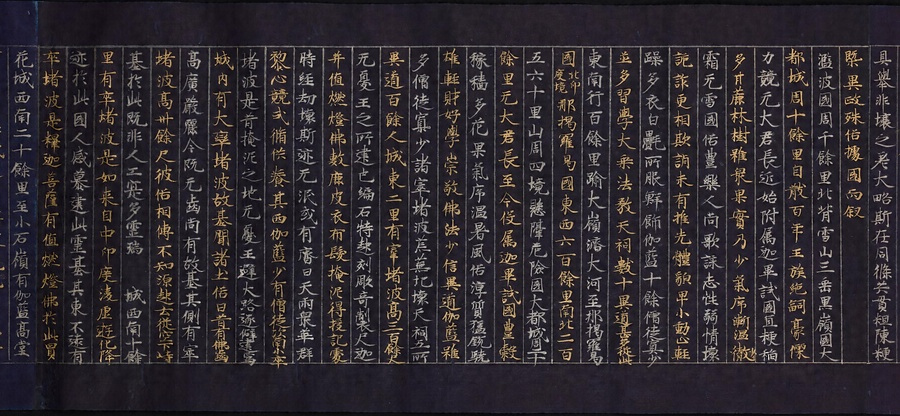 具舉非壞之差大略斯在同條共貫粗陳梗
槩異政殊俗據國而叙
濫波國周千餘里北背雪山三垂黑嶺國大
都城周十餘里自數百年王族絕嗣豪傑
力競无大君長近始附属迦畢試國宜粳稻
多甘蔗林樹雖衆果實乃少氣序漸温微
霜无雪國俗豐樂人尚歌詠志性弱情懷
詭詐更相欺誚未有推先體皃卑小動止輕
躁多衣白㲲所服鮮飾伽藍十餘僧徒寡少
並多習學大乘法教天祠數十異道甚多從此
東南行百餘里踰大嶺濟大河至那揭羅曷
國北印度境 那揭羅曷國東西六百餘里南北二百
五六十里山周四境懸隔危險國大都城周二十
餘里无大君長主令役属迦畢試國豐穀
稼穡多花果氣序温暑風俗淳質猛銳驍
雄輕財好學崇敬佛法少信異道伽藍雖
多僧徒寡少諸窣堵波荒蕪圮壞天祠五所
異道百餘人城東二里有窣堵波高三百餘尺
无憂王之所建也編石特起刻雕奇製尺迦
菩薩值燃燈佛敷鹿皮衣布髮掩泥得授記處
時經劫壞斯迹无泯或有齋日天雨衆華群
黎心競式脩供養其西伽藍少有僧徒次南小窣
堵波是昔掩泥之地无憂王避大路遂僻建焉
城内有大窣堵波故基聞諸土俗曰昔有佛齒
高廣嚴麗今既无齒尚有故基其側有窣
堵波高卅餘尺彼俗相傳不知源起云從空下峙
基於此既非人工寔多靈瑞 城西南十餘
里有窣堵波是如来自中印度凌虛遊化降
迹於此國人感慕建此靈基其東不遠有
窣堵波是釋迦菩薩昔值燃燈佛於此買
花城西南二十餘里至小石嶺有伽藍高堂